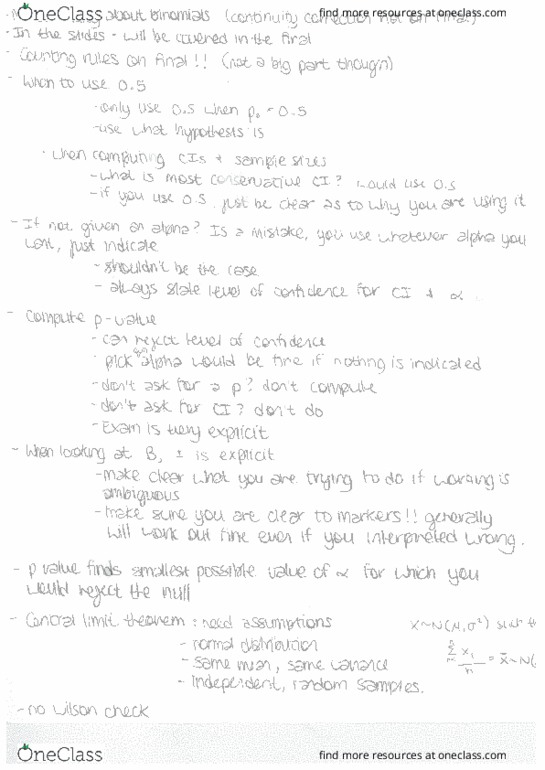 OneClass
find more resources at oneclass.com
about binomials (continuity correction not on final)
- In the slides - will be covered in the final
- Counting rules on final!! (not a big part though)
- When to use 0.5
- only use 0.5 when p₀ = 0.5
- use what hypothesis is
- when computing CIs + sample sizes
- what is most conservative CI? would use 0.5
- if you use 0.5 just be clear as to why you are using it
- If not given an alpha? Is a mistake, you use whatever alpha you
want, just indicate
- shouldn't be the case
- always state level of confidence for CI + α.
- Compute p-value
- can reject level of confidence
- pick alpha would be fine if nothing is indicated
- don't ask for a p? don't compute
- don't ask for CI? don't do
- Exam is very explicit
- When looking at B, I is explicit
- make clear what you are trying to do if wording is
ambiguous
- make sure you are clear to markers!! generally
will work out fine even if you interpreted wrong.
- p value finds smallest possible value of α for which you
would reject the null
- Central limit theorem: need assumptions
X~N(μ,σ²)
- normal distribution
- same mean, same variance
= x̄~N(
- independent, random samples.
- no Wilson check
OneClass
find more resources at oneclass.com